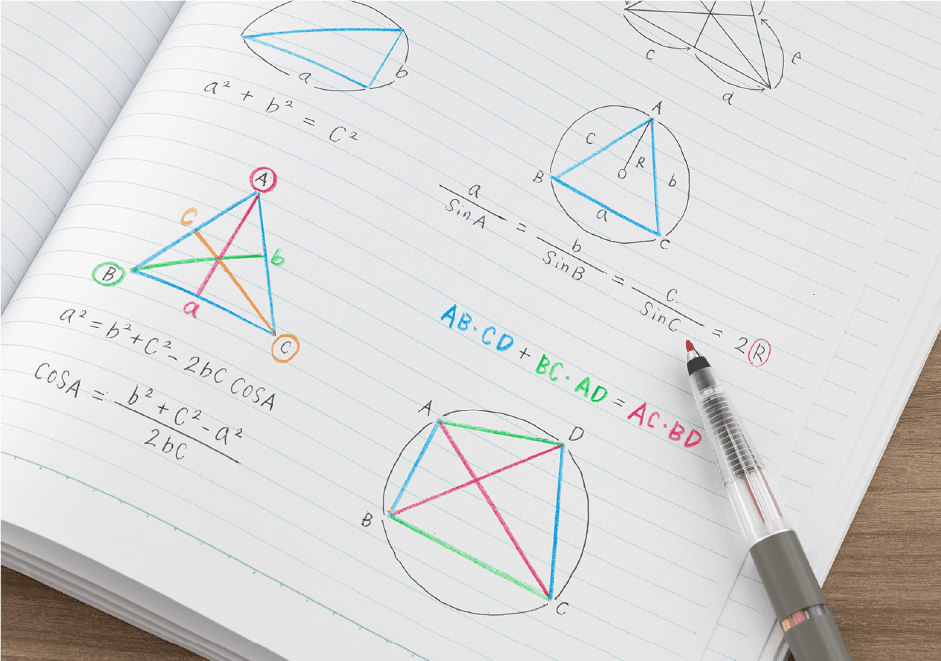 a b
a² + b² = C²
c
a
e
A
C R
B O b
a
C
a/SinA = b/SinB = C/SinC = 2R
A
C
B b
a
C
a² = b² + C² - 2bC COSA
COSA = b² + C² - a² / 2bC
AB·CD + BC·AD = AC·BD
A D
B
C